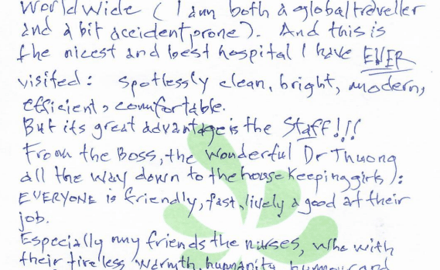 Worldwide (I am both a globaltraveller
and a bit accident prone). And this is
the nicest and best hospital I have EVER
visited: spotlessly clean, bright, modern,
efficient, comfortable.
But its great advantage is the Staff!!!
From the Boss, the wonderful Dr Thuong
all the way down to the housekeeping girls):
EVERYONE is friendly, fast, lively a good at their
job.
Especially my friends the nurses, who with
their tireless warmth, humanity, humour and